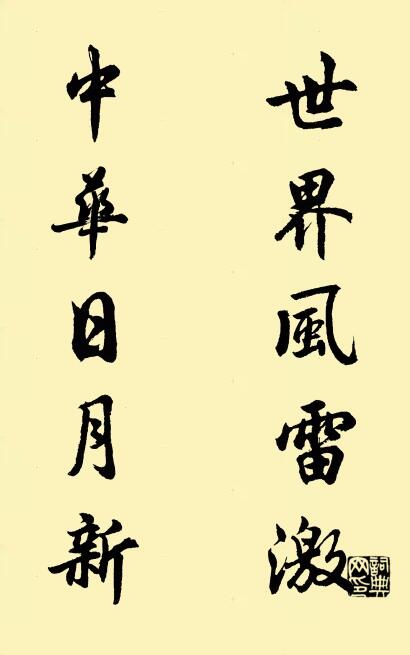 世界風雷激
中華日月新
詞典網印